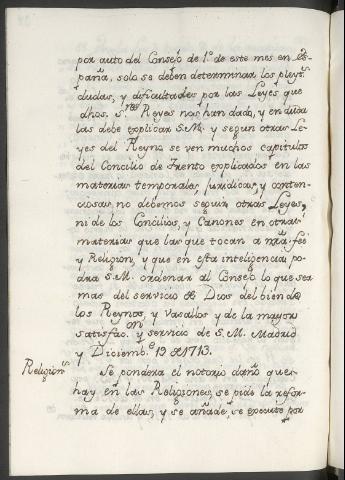 por auto del Consejo de 1.º de este mes en Es-
paña, solo se deben determinar los pleytos
dudas, y dificultades por las Leyes que
dhos. S.res Reyes nos han dado, y en duda
las debe explicar S.M. y segun otras Le-
yes del Reyno se ven muchos capitulos
del Concilio de Trento explicados en las
materias temporales, juridicas, y conten-
ciosas, no debemos seguir otras Leyes,
ni de los Concilios, y Canones en otras
materias que las que tocan a nra. feé
y Religion, y que en esta inteligencia, po-
dra S.M. ordenar al Consejo lo que sea
mas del servicio de Dios del bien de
los Reynos, y Vasallos y de la mayor
satisfac.on y servicio de S.M. Madrid
y Diciemb.e 19 de 1713.
Religion.s
Se pondera el notorio daño que
hay en las Religiones, se pide la refor-
ma de ellas, y se añade, se execute por